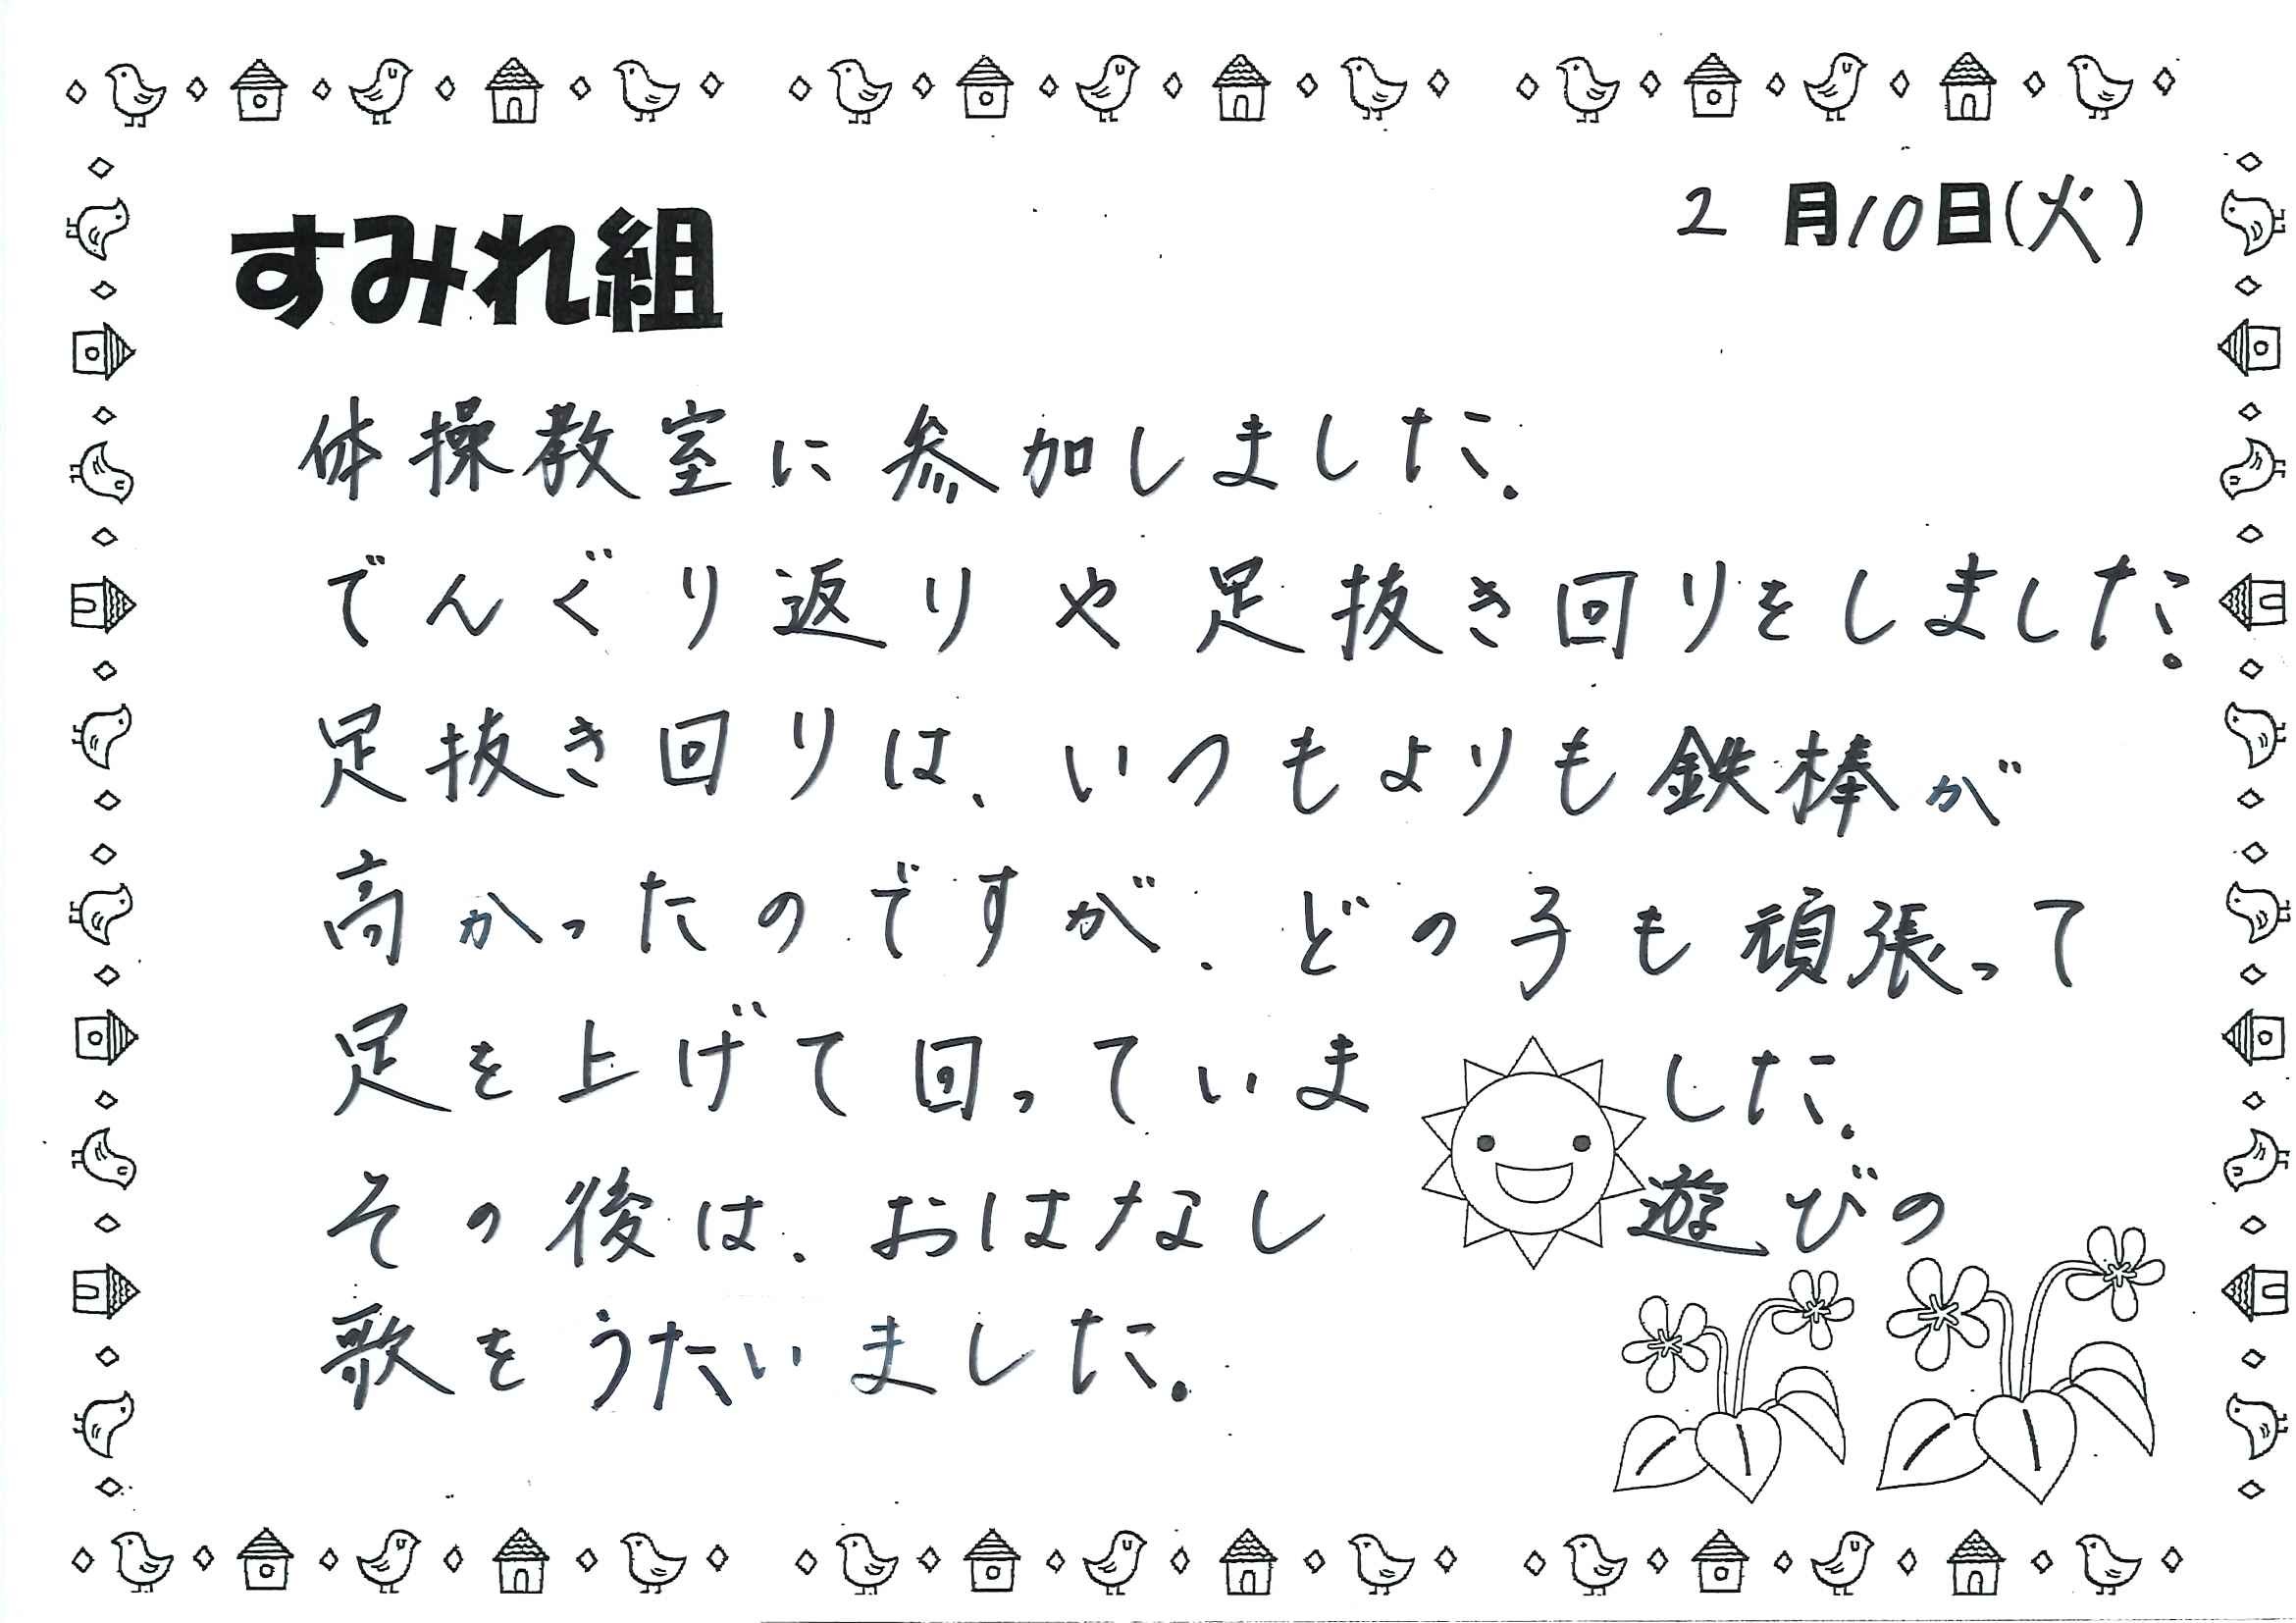 2月10日(火)
すみれ組
体操教室に参加しました.
でんぐり返りや足抜き回りをしました.
足抜き回りは、いつもよりも鉄棒が
高かったのですが、どの子も頑張って
足を上げて回っていました.
その後は、おはなし遊びの
歌をうたいました.